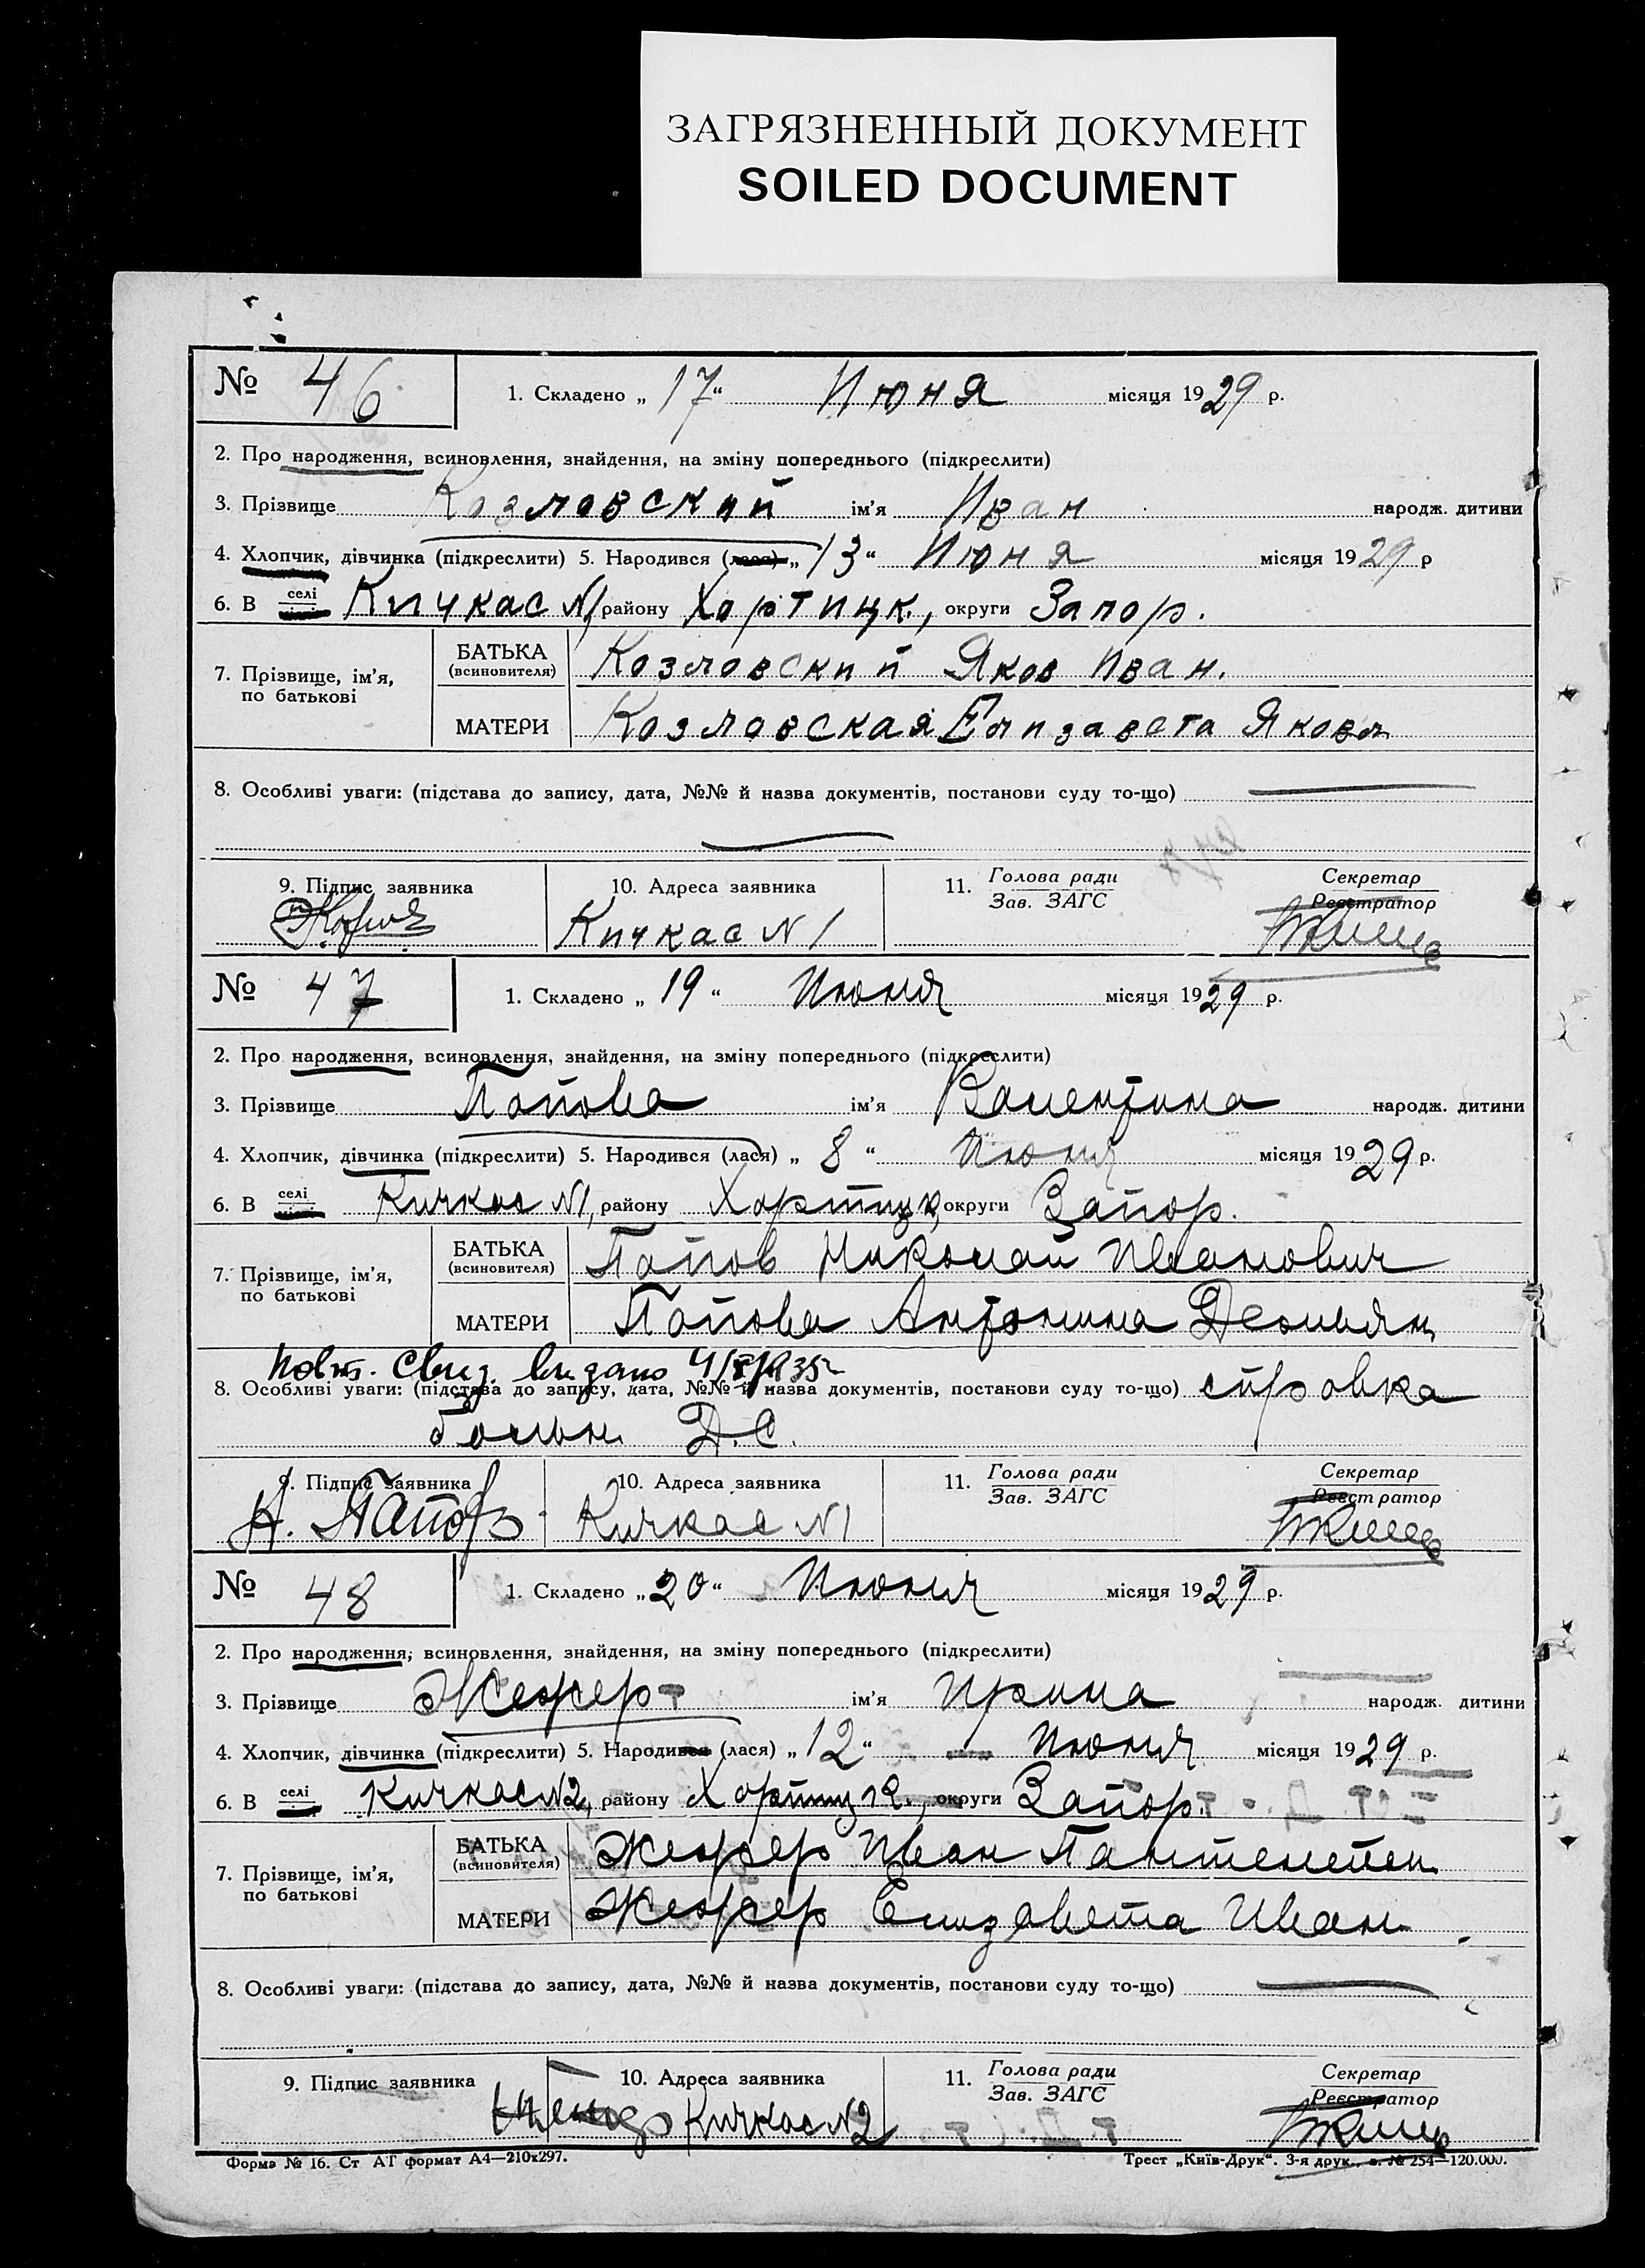 ЗАГРЯЗНЕННЫЙ ДОКУМЕНТ
SOILED DOCUMENT
№ 46 1. Складено „ 17 “ Июня місяця 1929 р.
2. Про народження, всиновлення, знайдення, на зміну попереднього (підкреслити)
3. Прізвище Козловский ім'я Иван народж. дитини
4. Хлопчик, дівчинка (підкреслити) 5. Народився (лася) „ 13 “ Июня місяця 1929 р
6. В селі Кичкас N1 району Хортицк., округи Запор.
7. Прізвище, ім'я, по батькові
БАТЬКА (всиновителя) Козловский Яков Иван.
МАТЕРИ Козловская Елизавета Яковл
8. Особливі уваги: (підстава до запису, дата, №№ й назва документів, постанови суду то-що)
9. Підпис заявника 10. Адреса заявника 11. Голова ради Секретар
Зав. ЗАГС Реєстратор
Кичкас N1
№ 47 1. Складено „ 19 “ Июня місяця 1929 р.
2. Про народження, всиновлення, знайдення, на зміну попереднього (підкреслити)
3. Прізвище Попова ім'я Валентина народж. дитини
4. Хлопчик, дівчинка (підкреслити) 5. Народився (лася) „ 8 “ Июня місяця 1929 р.
6. В селі Кичкас N1, району Хортицк, округи Запор.
7. Прізвище, ім'я, по батькові
БАТЬКА (всиновителя) Попов Николай Иванович
МАТЕРИ Попова Антонина Демьян
Повт. Свид. выдано
8. Особливі уваги: (підстава до запису, дата, №№ й назва документів, постанови суду то-що) справка
больн. Д.С.
9. Підпис заявника 10. Адреса заявника 11. Голова ради Секретар
Зав. ЗАГС Реєстратор
Кичкас N1
№ 48 1. Складено „ 20 “ Июня місяця 1929 р.
2. Про народження, всиновлення, знайдення, на зміну попереднього (підкреслити)
3. Прізвище ім'я Ирина народж. дитини
4. Хлопчик, дівчинка (підкреслити) 5. Народився (лася) „ 12 “ Июня місяця 1929 р.
6. В селі Кичкас N2, району Хортицк., округи Запор.
7. Прізвище, ім'я, по батькові
БАТЬКА (всиновителя) Иван
МАТЕРИ Елизавета Иван
8. Особливі уваги: (підстава до запису, дата, №№ й назва документів, постанови суду то-що)
9. Підпис заявника 10. Адреса заявника 11. Голова ради Секретар
Зав. ЗАГС Реєстратор
Кичкас N2
Форма № 16. Ст АТ формат А4—210x297. Трест „Київ-Друк“. 3-я друк., з. № 254—120.000.